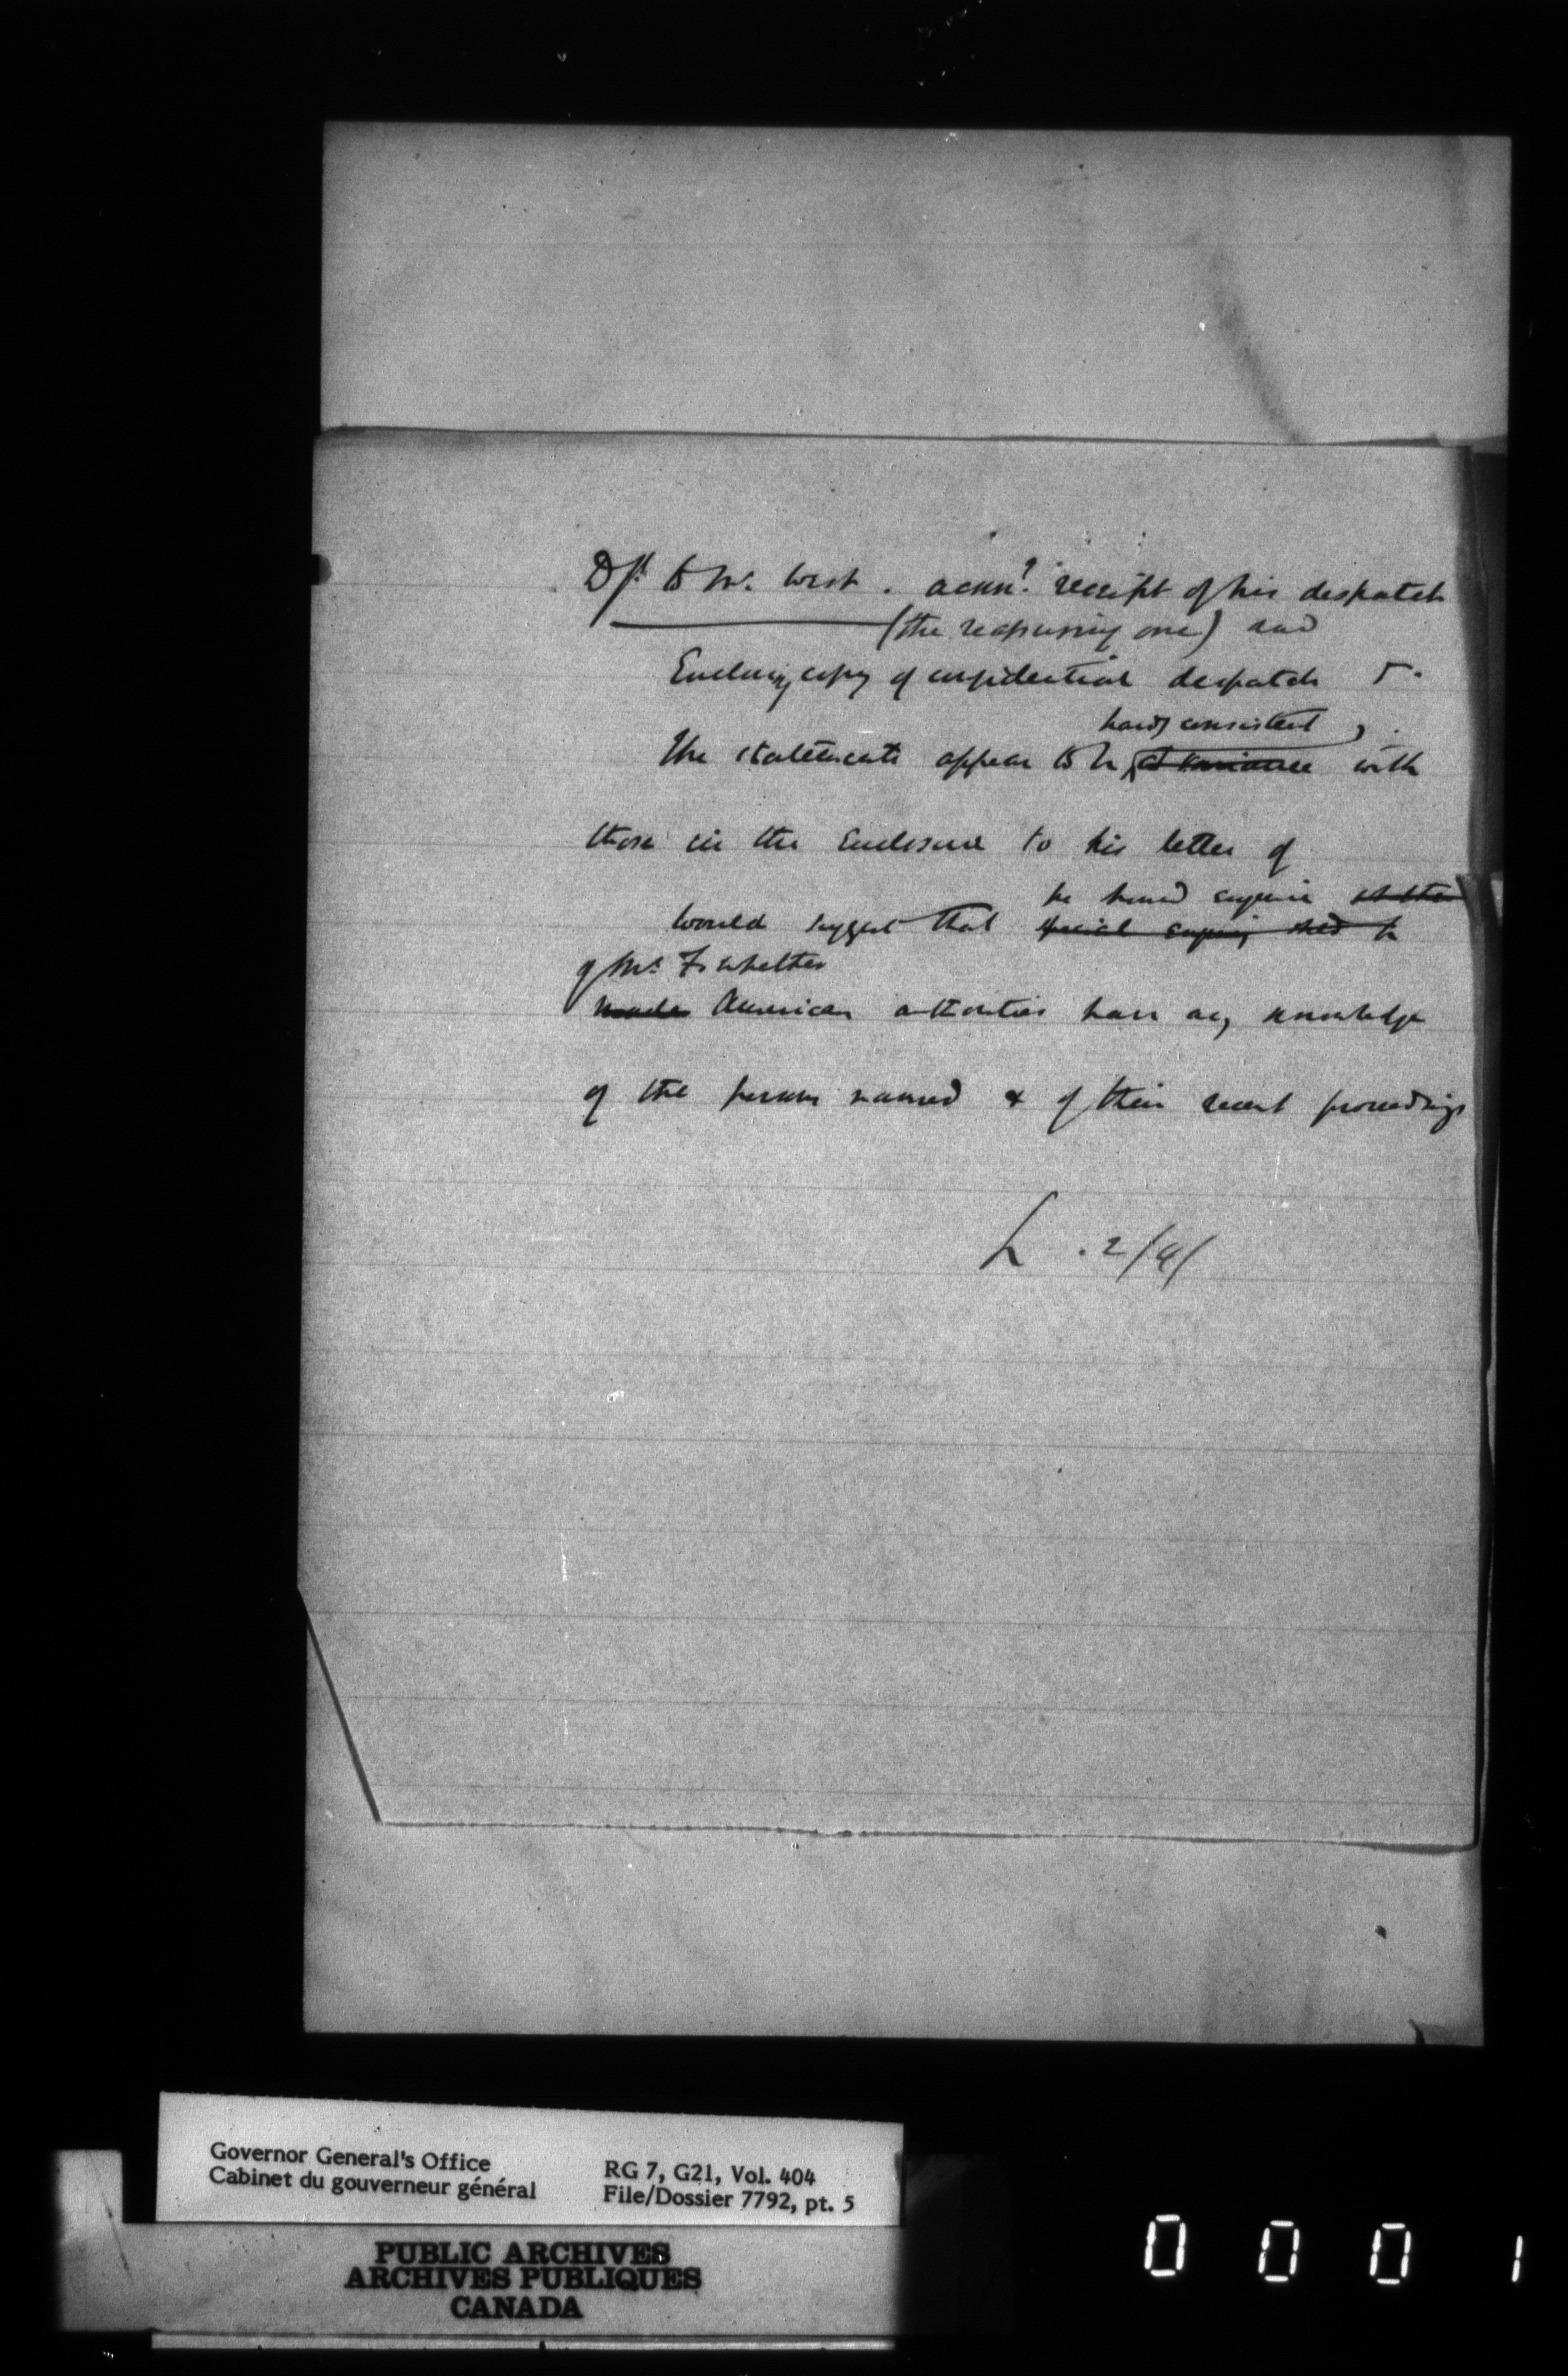 Dft to Mr. West. ackn? receipt of his despatch
(the reassuring one) and
Enclosing copy of confidential despatch
hardly consistent
The statements appear to be at variance with
those in the Enclosure to his letter of
he should enquire whether
Would suggest that special enquiry shd be
of Mr. F. whether
made American authorities have any knowledge
of the persons named & of their recent proceedings
L . 2/4/
Governor General's Office
Cabinet du gouverneur général
RG 7, G21, Vol. 404
File/Dossier 7792, pt. 5
PUBLIC ARCHIVES
ARCHIVES PUBLIQUES
CANADA
0001